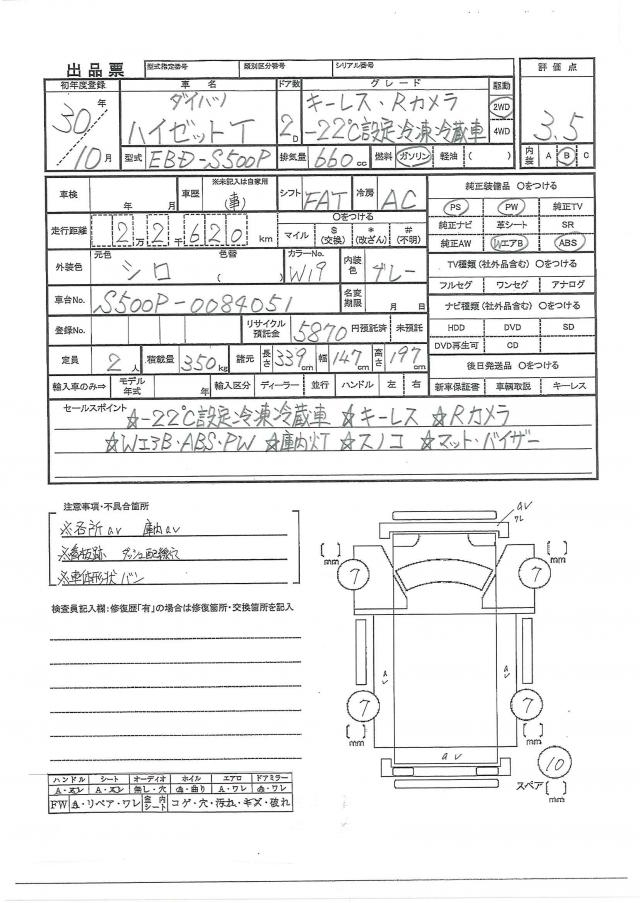 出品票 型式指定番号 類別区分番号 シリアル番号
初年度登録 車名 ドア数 グレード 駆動 評価点
30年 ダイハツ キーレス・Rカメラ 2WD
10月 ハイゼットT 2D -22℃設定冷凍冷蔵車 4WD 3.5
型式 EBD-S500P 排気量 660cc 燃料 ガソリン 軽油 ( ) 内装 A B C
車検 年 月 車歴 ※未記入は自家用 (事) シフト FAT 冷房 AC 純正装備品 〇をつける
PS PW 純正TV
走行距離 22万2千620km 〇をつける 純正ナビ 革シート SR
マイル $(交換) *(改ざん) #(不明) 純正AW WエアB ABS
外装色 元色 シロ 色替 ( ) カラーNo. W19 内装色 グレー TV種類(社外品含む) 〇をつける
フルセグ ワンセグ アナログ
車台No. S500P-0084051 名変期限 月 日 ナビ種類(社外品含む) 〇をつける
登録No. リサイクル預託金 5870円預託済 未預託 HDD DVD SD
DVD再生可 CD
定員 2人 積載量 350kg 諸元 長さ 339cm 幅 147cm 高さ 197cm 後日発送品 〇をつける
輸入車のみ⇒ モデル年式 年 輸入区分 ディーラー 並行 ハンドル 左 右 新車保証書 車輌取説 キーレス
セールスポイント ☆-22℃設定冷凍冷蔵車 ☆キーレス ☆Rカメラ
☆WエアB・ABS・PW ☆庫内灯 ☆スノコ ☆マット・バイザー
注意事項・不具合箇所
※各所av 庫内av
※看板跡 ダッシュ配線穴
※車体形状バン
検査員記入欄:修復歴「有」の場合は修復箇所・交換箇所を記入
av
ワレ
mm
mm
7
7
av
av
7
7
mm
mm
av
10
スペア
mm
ハンドル シート オーディオ ホイル エアロ ドアミラー
A・スレ A・スレ 無し・穴 A・曲り A・ワレ A・ワレ
FW A・リペア・ワレ 室内シート コゲ・穴・汚れ・キズ・破れ